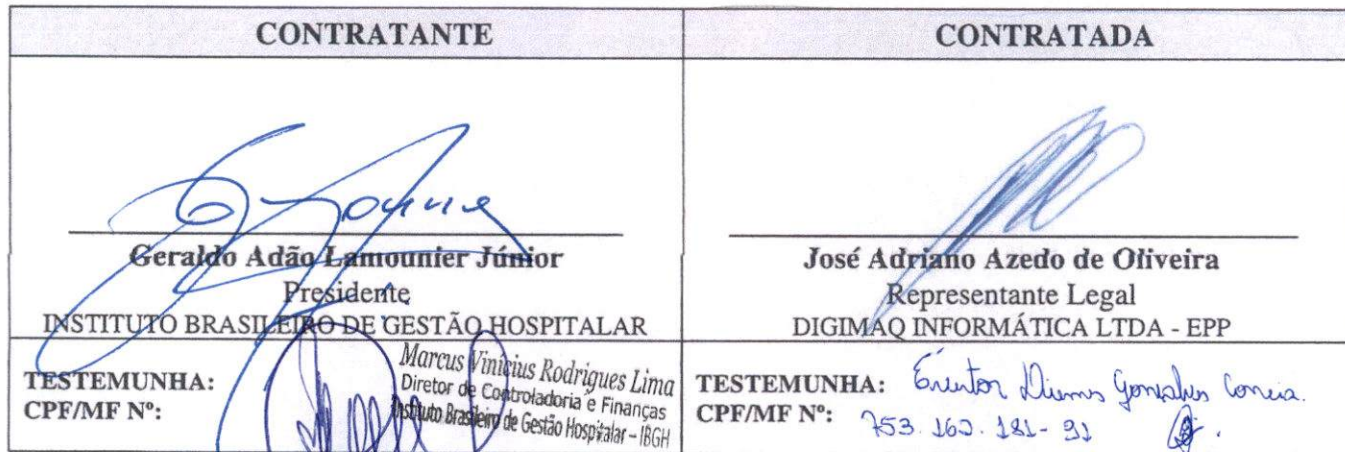 CONTRATANTE
CONTRATADA
Geraldo Adão Lamounier Júnior
Presidente
INSTITUTO BRASILEIRO DE GESTÃO HOSPITALAR
José Adriano Azedo de Oliveira
Representante Legal
DIGIMAQ INFORMÁTICA LTDA - EPP
TESTEMUNHA:
CPF/MF Nº:
Marcus Vinícius Rodrigues Lima
Diretor de Controladoria e Finanças
Instituto Brasileiro de Gestão Hospitalar – IBGH
TESTEMUNHA:
CPF/MF Nº: